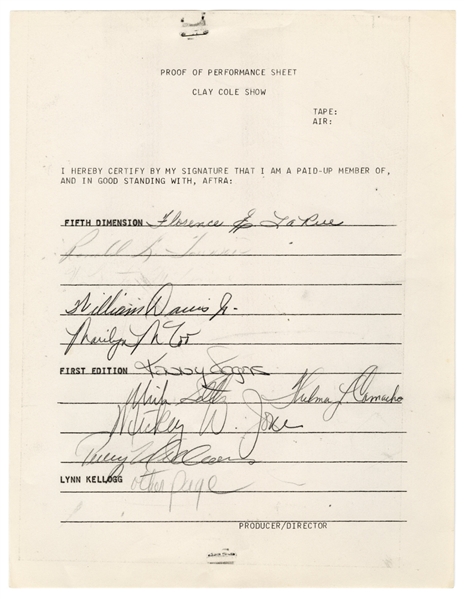 PROOF OF PERFORMANCE SHEET
CLAY COLE SHOW
TAPE:
AIR:
I HEREBY CERTIFY BY MY SIGNATURE THAT I AM A PAID-UP MEMBER OF,
AND IN GOOD STANDING WITH, AFTRA:
FIFTH DIMENSION Florence E LaRue
William Davis Jr.
Marilyn McCoo
FIRST EDITION Kenny Rogers
Mike Settle Thelma L. Camacho
Mickey W. Jones
Terry Williams
LYNN KELLOGG other page
PRODUCER/DIRECTOR